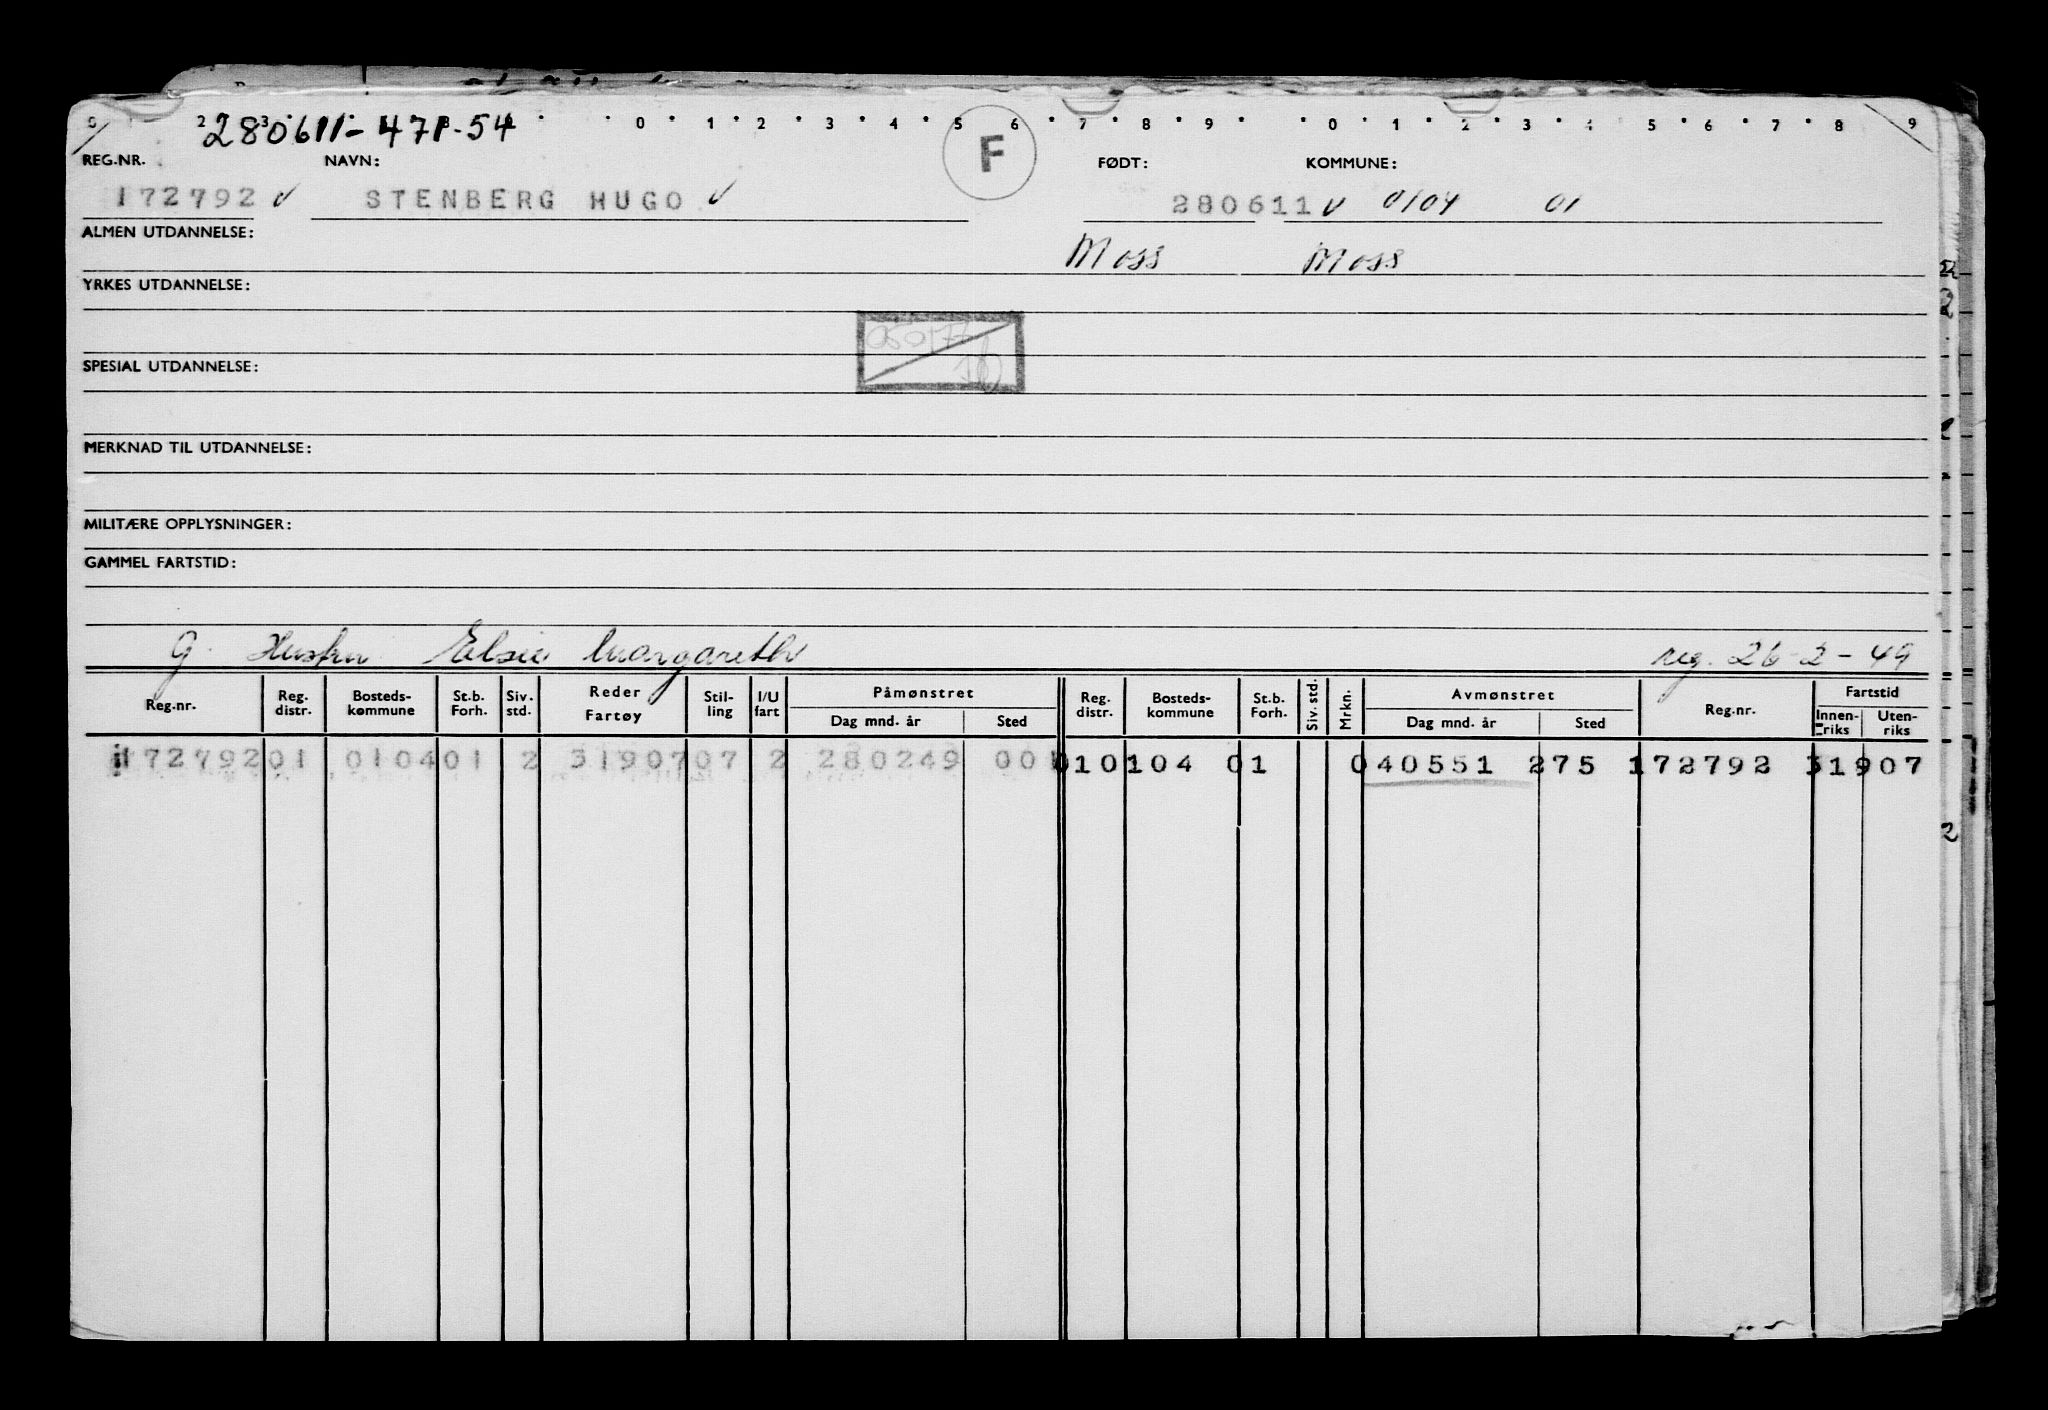 280611-471-54
F
REG.NR. NAVN: FØDT: KOMMUNE:
172792 v STENBERG HUGO v 280611 v 0104 01
ALMEN UTDANNELSE: Moss Moss
YRKES UTDANNELSE:
SPESIAL UTDANNELSE:
MERKNAD TIL UTDANNELSE:
MILITÆRE OPPLYSNINGER:
GAMMEL FARTSTID:
G. Hustru Elsie Margareth reg. 26-2-49
Reg.nr. Reg. distr. Bosteds- kommune St.b. Forh. Siv. std. Reder Fartøy Stil- ling I/U fart Påmønstret Dag mnd. år Sted Reg. distr. Bosteds- kommune St.b. Forh. Siv. std. Mrkn. Avmønstret Dag mnd. år Sted Reg.nr. Fartstid Innen- riks Uten- riks
172792 01 0104 01 2 31907 07 2 280249 00 010104 01 040551 275 172792 31907